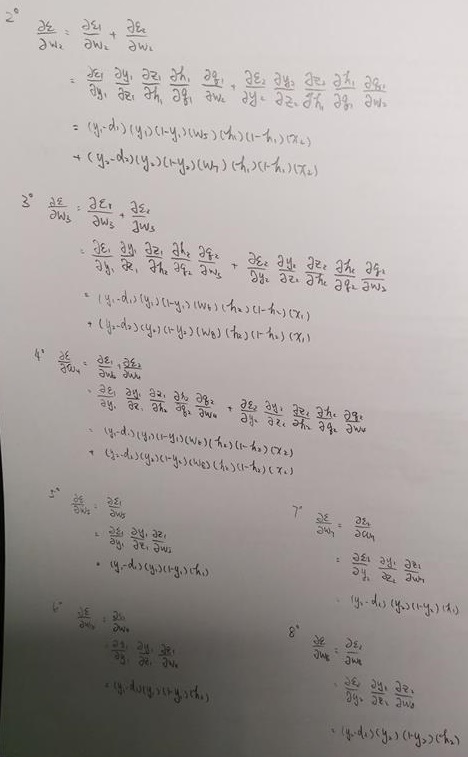 2°
∂ε/∂w₂ = ∂ε₁/∂w₂ + ∂ε₂/∂w₂
= ∂ε₁/∂y₁ ∂y₁/∂z₁ ∂z₁/∂h₁ ∂h₁/∂q₁ ∂q₁/∂w₂ + ∂ε₂/∂y₂ ∂y₂/∂z₂ ∂z₂/∂h₁ ∂h₁/∂q₁ ∂q₁/∂w₂
= (y₁-d₁)(y₁)(1-y₁)(w₅)(h₁)(1-h₁)(x₂)
+ (y₂-d₂)(y₂)(1-y₂)(w₇)(h₁)(1-h₁)(x₂)
3° ∂ε/∂w₃ = ∂ε₁/∂w₃ + ∂ε₂/∂w₃
= ∂ε₁/∂y₁ ∂y₁/∂z₁ ∂z₁/∂h₂ ∂h₂/∂q₂ ∂q₂/∂w₃ + ∂ε₂/∂y₂ ∂y₂/∂z₂ ∂z₂/∂h₂ ∂h₂/∂q₂ ∂q₂/∂w₃
= (y₁-d₁)(y₁)(1-y₁)(w₆)(h₂)(1-h₂)(x₁)
+ (y₂-d₂)(y₂)(1-y₂)(w₈)(h₂)(1-h₂)(x₁)
4° ∂ε/∂w₄ = ∂ε₁/∂w₄ + ∂ε₂/∂w₄
= ∂ε₁/∂y₁ ∂y₁/∂z₁ ∂z₁/∂h₂ ∂h₂/∂q₂ ∂q₂/∂w₄ + ∂ε₂/∂y₂ ∂y₂/∂z₂ ∂z₂/∂h₂ ∂h₂/∂q₂ ∂q₂/∂w₄
= (y₁-d₁)(y₁)(1-y₁)(w₆)(h₂)(1-h₂)(x₂)
+ (y₂-d₂)(y₂)(1-y₂)(w₈)(h₂)(1-h₂)(x₂)
5° ∂ε/∂w₅ = ∂ε₁/∂w₅
= ∂ε₁/∂y₁ ∂y₁/∂z₁ ∂z₁/∂w₅
= (y₁-d₁)(y₁)(1-y₁)(h₁)
6° ∂ε/∂w₆ = ∂ε₁/∂w₆
= ∂ε₁/∂y₁ ∂y₁/∂z₁ ∂z₁/∂w₆
= (y₁-d₁)(y₁)(1-y₁)(h₂)
7° ∂ε/∂w₇ = ∂ε₂/∂w₇
= ∂ε₂/∂y₂ ∂y₂/∂z₂ ∂z₂/∂w₇
= (y₂-d₂)(y₂)(1-y₂)(h₁)
8° ∂ε/∂w₈ = ∂ε₂/∂w₈
= ∂ε₂/∂y₂ ∂y₂/∂z₂ ∂z₂/∂w₈
= (y₂-d₂)(y₂)(1-y₂)(h₂)